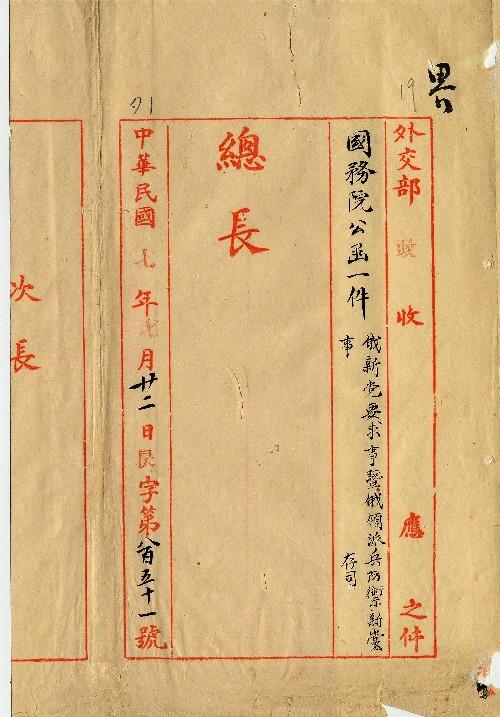 界
19
外交部 收 收 應 之件
國務院公函一件
俄新党要求事暨俄領派兵防禦新黨
事
存司
總長
中華民國七年七月廿二日良字第八百五十一號
次長